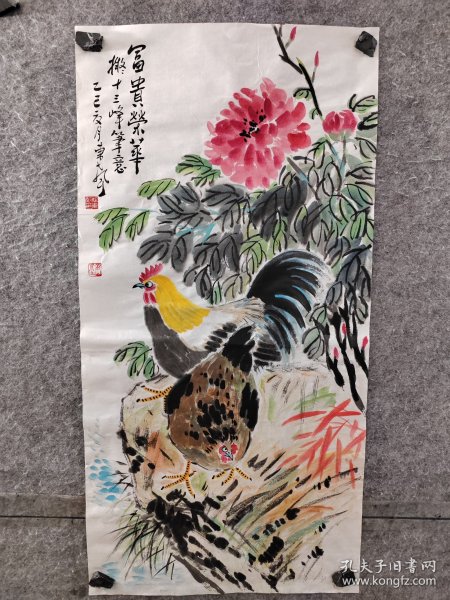 富貴榮華
擬十三峰筆意
乙巳夏月東
孔夫子旧书网
www.kongfz.com